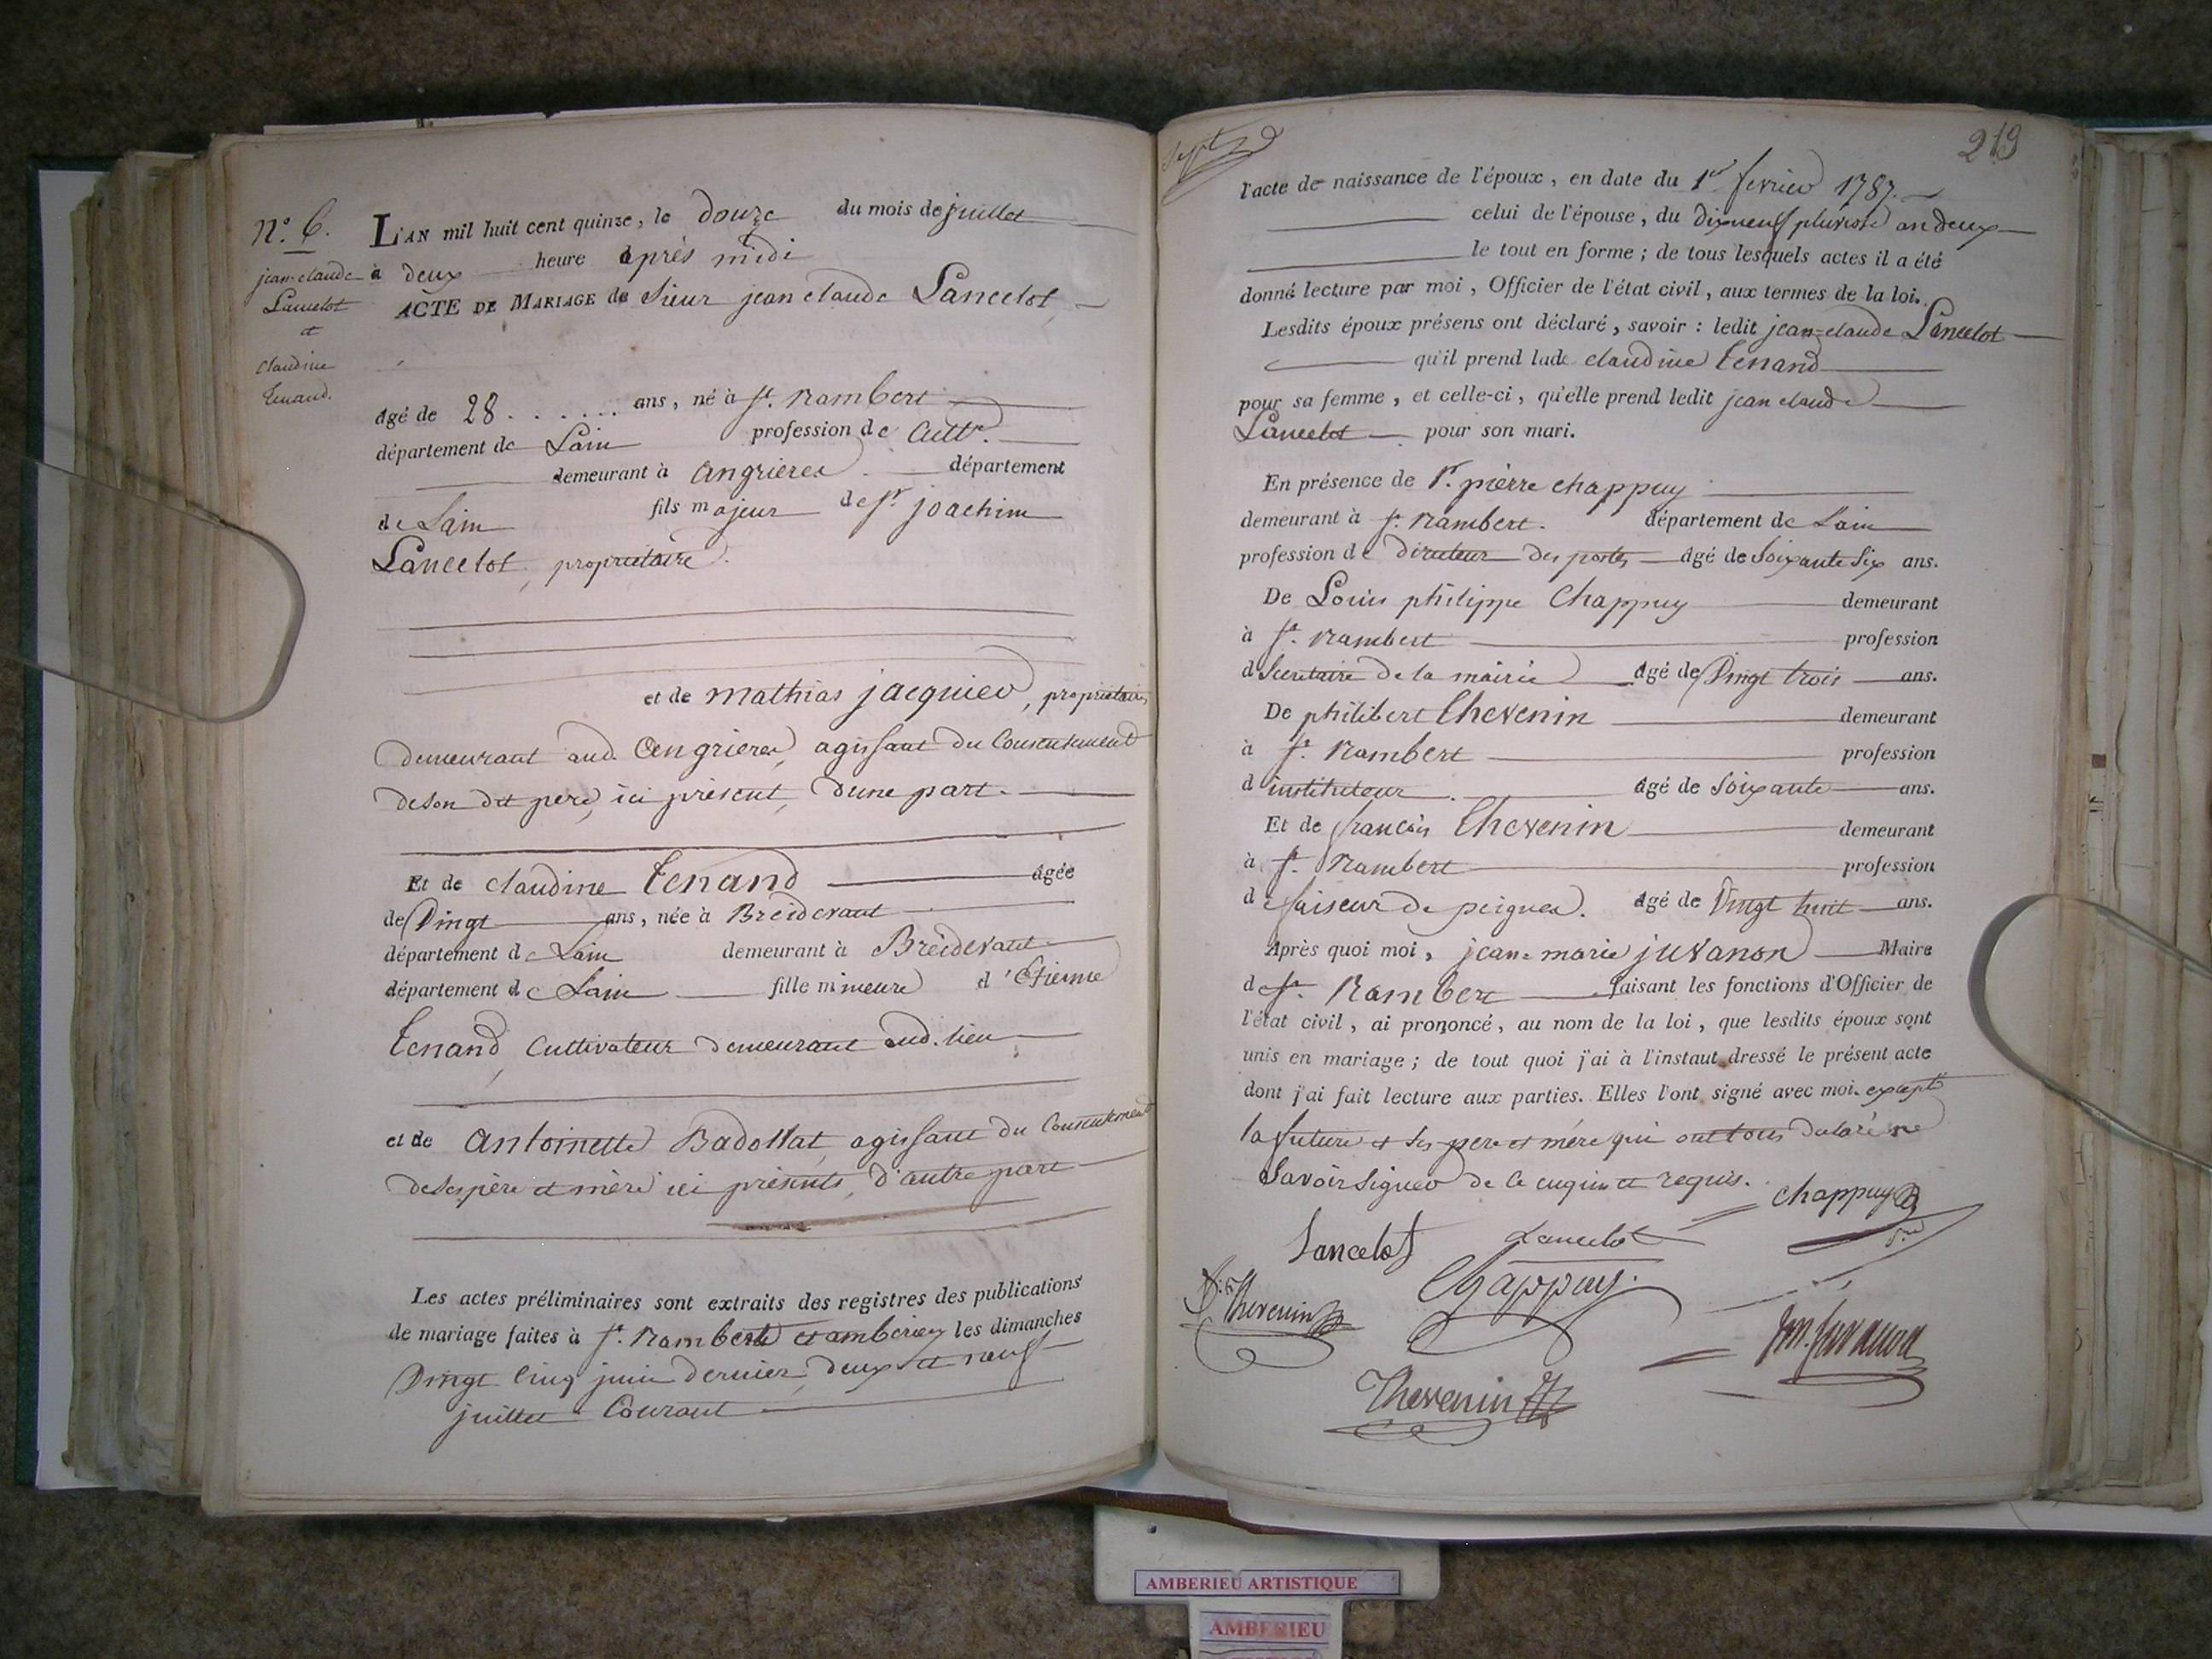 N.º 6.
jean-claude
Lancelot
et
claudine
Tenand.
L'AN mil huit cent quinze, le douze du mois de juillet
à deux heure après midi
ACTE DE MARIAGE de Sieur jean claude Lancelot
âgé de 28 . . . . . . ans, né à St. Rambert
département de Lain profession de Cultr.
demeurant à angrieres département
de Lain fils majeur de Sr. joachim
Lancelot, propriétaire.
et de mathias jacquier, propriétaire,
demeurant aud. angrieres, agissant du Consentement
de son dit pere, ici présent, d'une part.
Et de claudine Tenand âgée
de Vingt ans, née à Breidevant
département de Lain demeurant à Breidevant
département de Lain fille mineure d'Etienne
Tenand, Cultivateur demeurant aud. lieu
et de antoinette Badollat, agissant du Consentement
de ses père et mère ici présents, d'autre part
Les actes préliminaires sont extraits des registres des publications
de mariage faites à St. Rambert et amberieu les dimanches
Vingt Cinq juin dernier, deux et neuf
juillet Courant
Sept
219
l'acte de naissance de l'époux, en date du 1er fevrier 1787.
celui de l'épouse, du dixneuf pluviose an deux
le tout en forme; de tous lesquels actes il a été
donné lecture par moi, Officier de l'état civil, aux termes de la loi.
Lesdits époux présens ont déclaré, savoir: ledit jean-claude Lancelot
qu'il prend lade claudine Tenand
pour sa femme, et celle-ci, qu'elle prend ledit jean claude
Lancelot pour son mari.
En présence de Sr. pierre chappuy
demeurant à St. Rambert. département de Lain
profession de directeur des postes âgé de Soixante Six ans.
De Louis philippe Chappuy demeurant
à St. Rambert profession
d Secretaire de la mairie âgé de Vingt trois ans.
De philibert Thevenin demeurant
à St. Rambert profession
d'instituteur. âgé de Soixante ans.
Et de françois Thevenin demeurant
à St. Rambert profession
de faiseur de peignes. âgé de Vingt huit ans.
Après quoi moi, jean-marie juvanon Maire
de St. Rambert faisant les fonctions d'Officier de
l'état civil, ai prononcé, au nom de la loi, que lesdits époux sont
unis en mariage; de tout quoi j'ai à l'instaut dressé le présent acte
dont j'ai fait lecture aux parties. Elles l'ont signé avec moi. excepté
la future et ses pere et mère qui ont tous declaré ne
Savoir Signer de ce enquis et requis.
chappuy
Lancelot Lancelot
Chappuy
Thevenin
jm. juvanon
Thevenin
AMBERIEU ARTISTIQUE
AMBERIEU